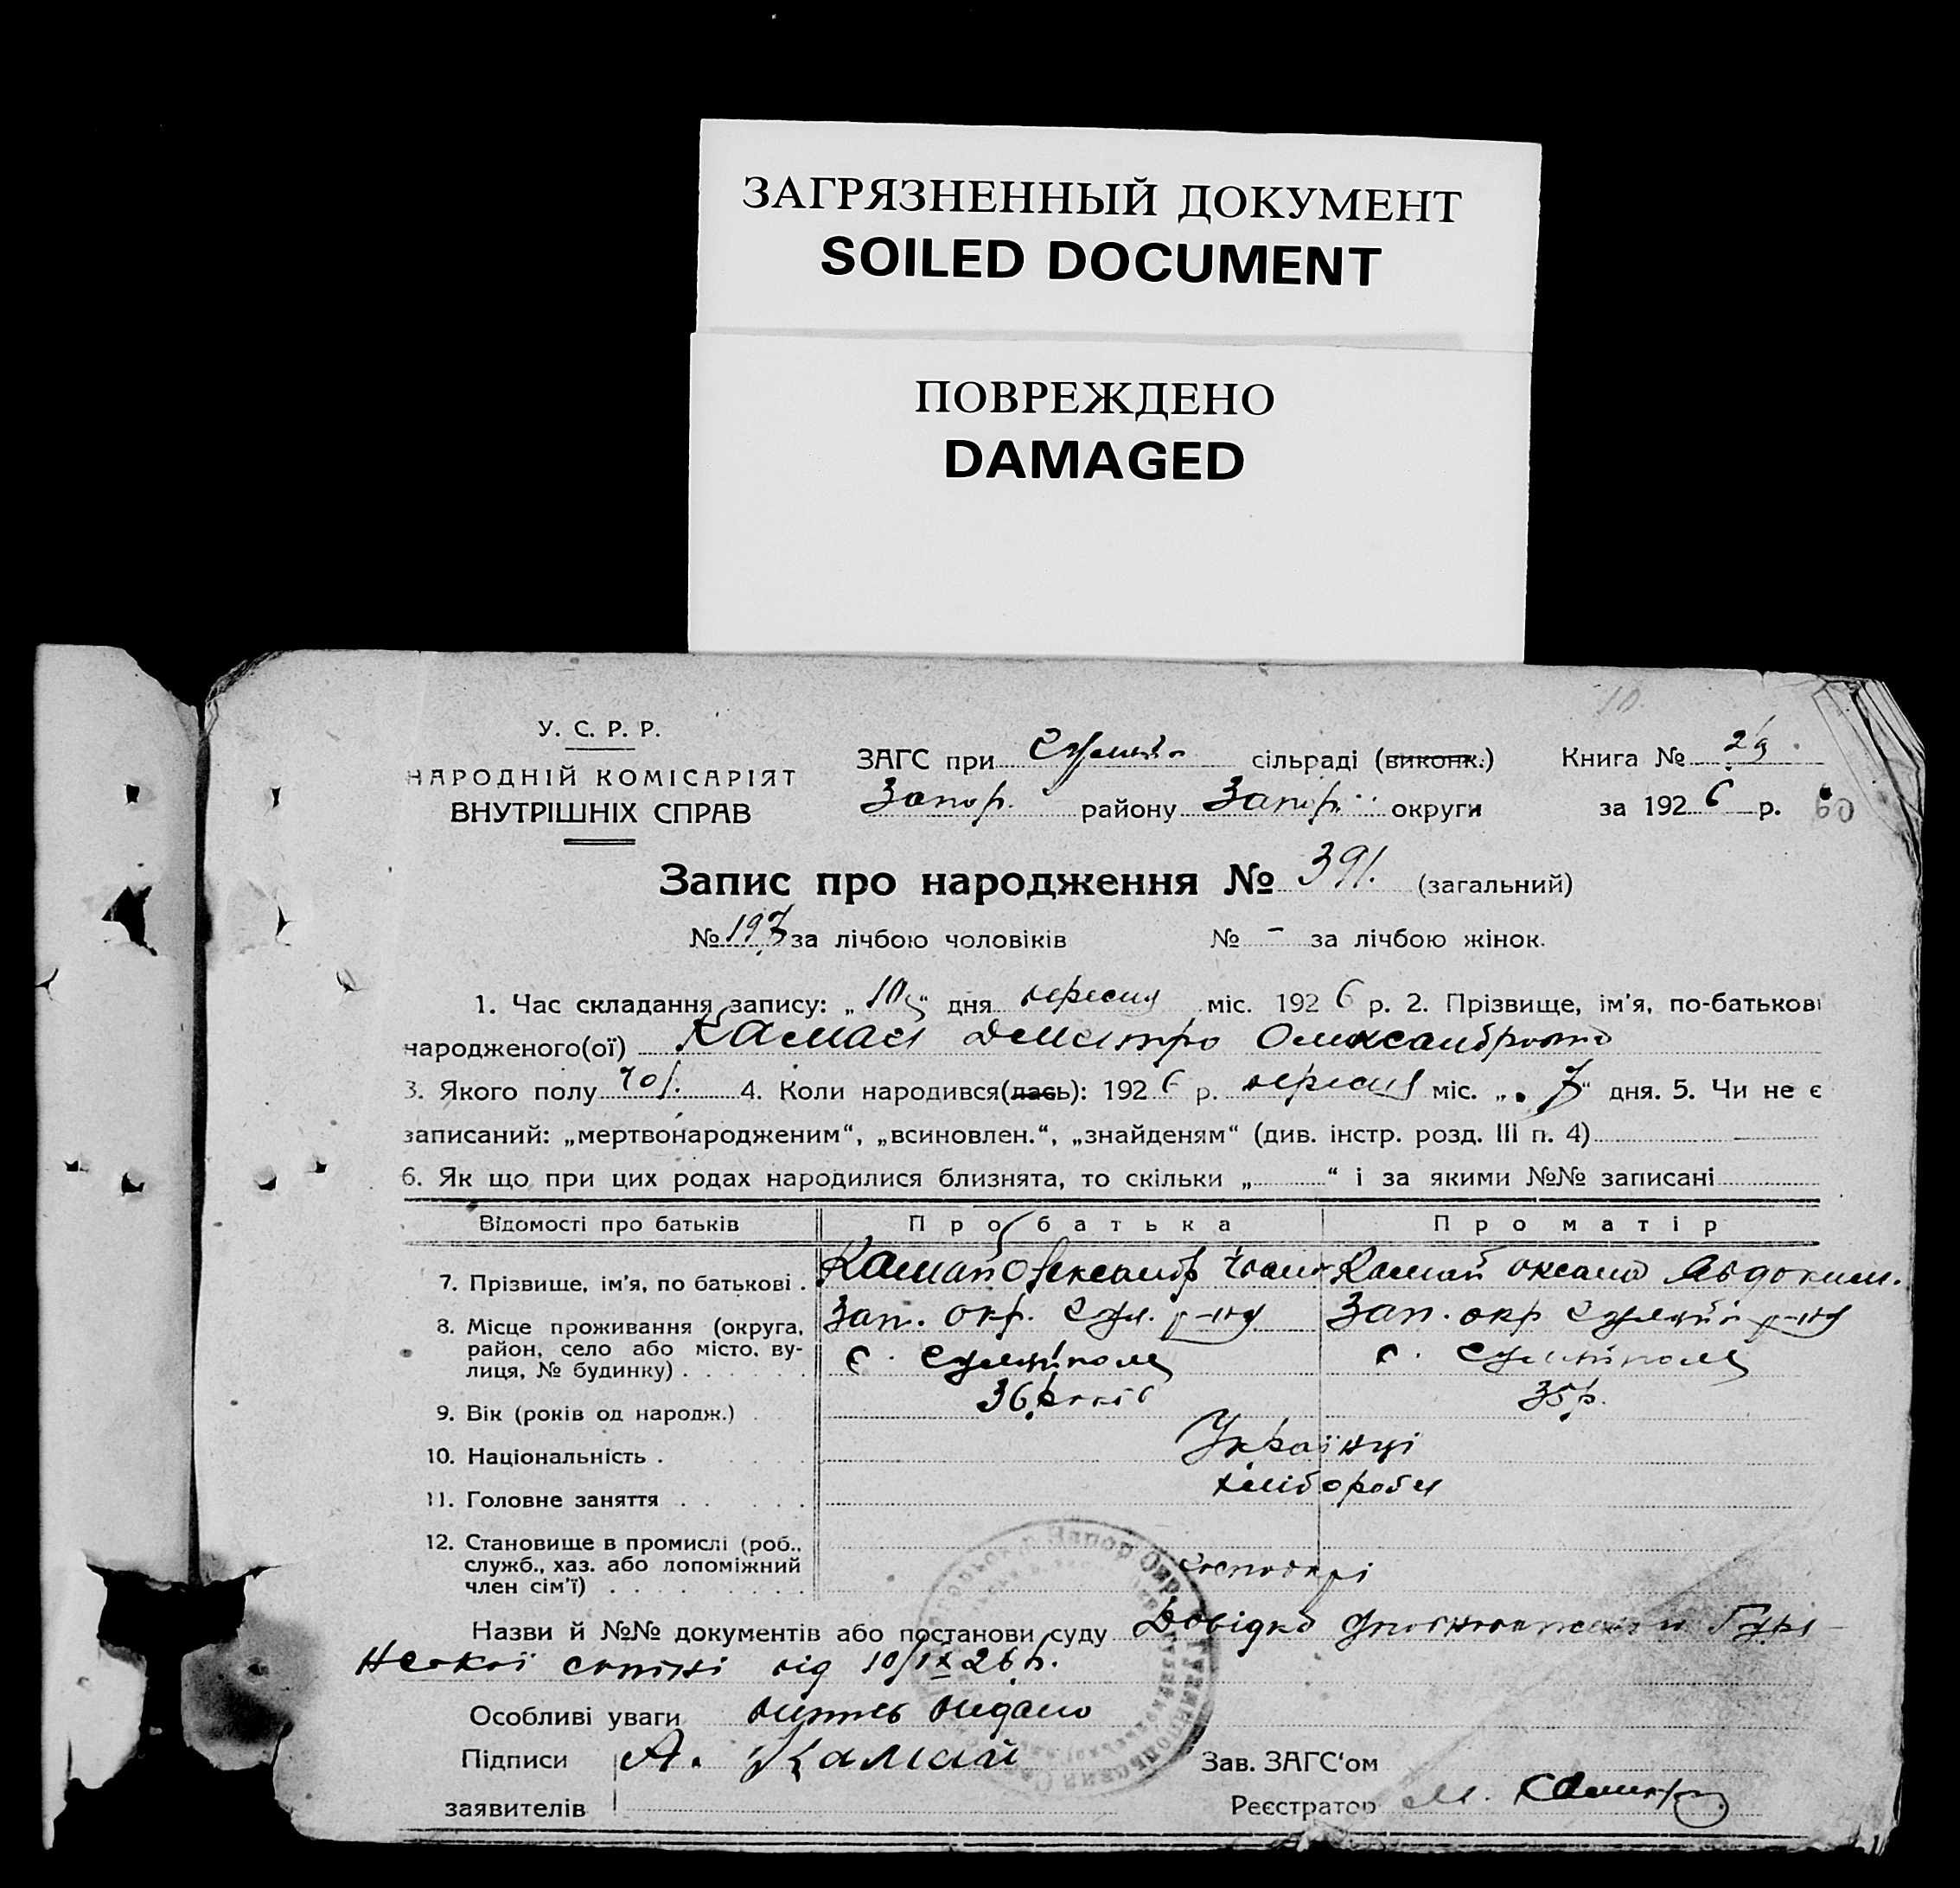 ЗАГРЯЗНЕННЫЙ ДОКУМЕНТ
SOILED DOCUMENT
ПОВРЕЖДЕНО
DAMAGED
10.
У. С. Р. Р.
НАРОДНІЙ КОМІСАРІЯТ
ВНУТРІШНІХ СПРАВ
ЗАГС при сільраді (виконк.) Книга №
Запор. району Запор. округи за 1926 р. 60
Запис про народження № 391. (загальний)
№ 197 за лічбою чоловіків № - за лічбою жінок.
1. Час складання запису: „10“ дня вересня міс. 1926 р. 2. Прізвище, ім'я, по-батькові
народженого(ої) Камай Дмитро Олександрович
3. Якого полу чол. 4. Коли народився(лась): 1926 р. вересня міс. „7“ дня. 5. Чи не є
записаний: „мертвонародженим“, „всиновлен.“, „знайденям“ (див. інстр. розд. III п. 4)
6. Як що при цих родах народилися близнята, то скільки „ “ і за якими №№ записані
Відомості про батьків Про батька Про матір
7. Прізвище, ім'я, по батькові . Камай Олександр Іван Камай Оксана Авдоким.
8. Місце проживання (округа, район, село або місто, вулиця, № будинку) Зап. окр. р-ну Зап. окр р-ну
с. с.
9. Вік (років од народж.) 36 років 35 р.
10. Національність . Українці
11. Головне заняття хлібороби
12. Становище в промислі (роб., служб., хаз. або допоміжний член сім'ї) господарі
Назви й №№ документів або постанови суду Довідка
від 10/IX 26 р.
Особливі уваги витяг видано
Підписи А. Камай Зав. ЗАГС‘ом
заявителів Реєстратор М.